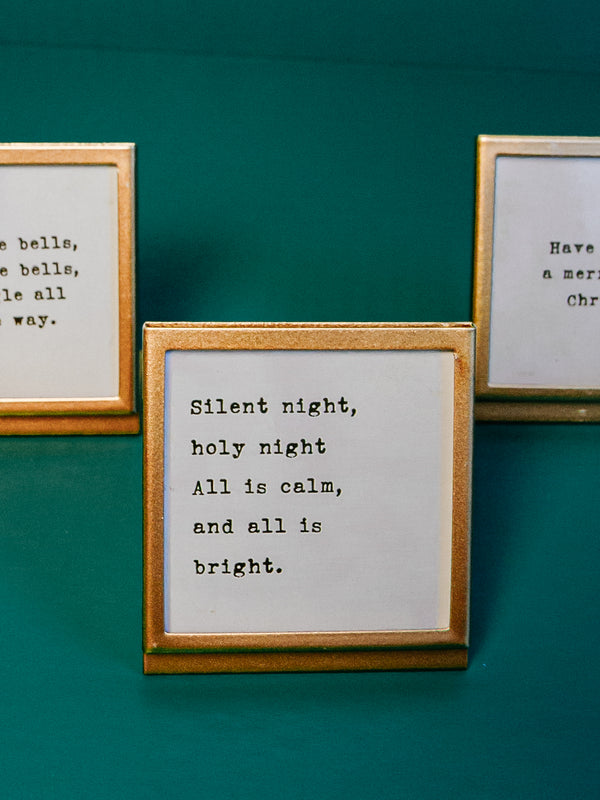 bells,
bells,
all
way.
Silent night,
holy night
All is calm,
and all is
bright.
Have
a